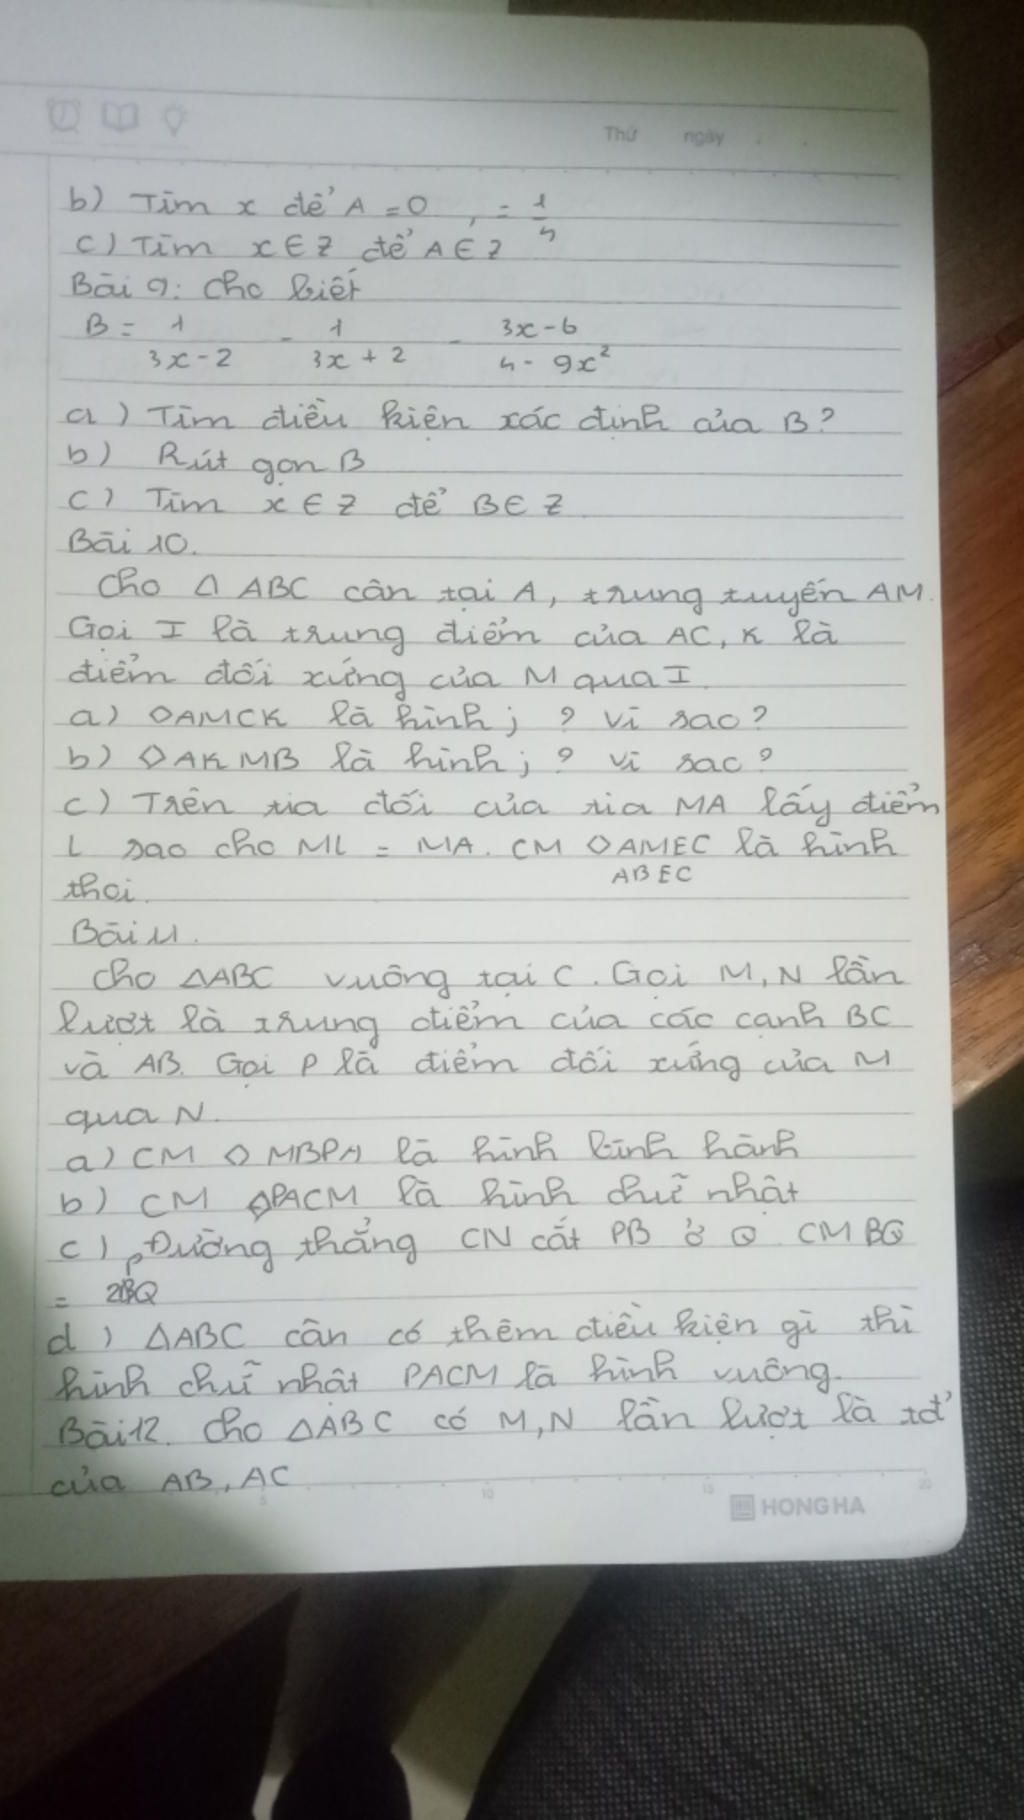 Thứ ngày
b) Tìm x để A = 0, = 1/4
c) Tìm x ∈ Z để A ∈ Z
Bài 9: Cho biết
B = 1/(3x - 2) - 1/(3x + 2) - (3x - 6)/(4 - 9x²)
a) Tìm điều kiện xác định của B?
b) Rút gọn B
c) Tìm x ∈ Z để B ∈ Z
Bài 10.
Cho Δ ABC cân tại A, trung tuyến AM.
Gọi I là trung điểm của AC, K là
điểm đối xứng của M qua I
a) ◇AMCK là hình j ? vì sao?
b) ◇AKMB là hình j ? vì sao?
c) Trên tia đối của tia MA lấy điểm
L sao cho ML = MA. CM ◇AMEC là hình
ABEC
thoi.
Bài 11.
Cho ΔABC vuông tại C. Gọi M, N lần
lượt là trung điểm của các cạnh BC
và AB. Gọi P là điểm đối xứng của M
qua N.
a) CM ◇ MBPA là hình bình hành
b) CM ◇PACM là hình chữ nhật
c) Đường thẳng CN cắt PB ở Q. CM BQ
= 2PQ
d) ΔABC cần có thêm điều kiện gì thì
hình chữ nhật PACM là hình vuông.
Bài 12. Cho ΔABC có M, N lần lượt là tđ
của AB, AC
5 10 15 20
HONG HA